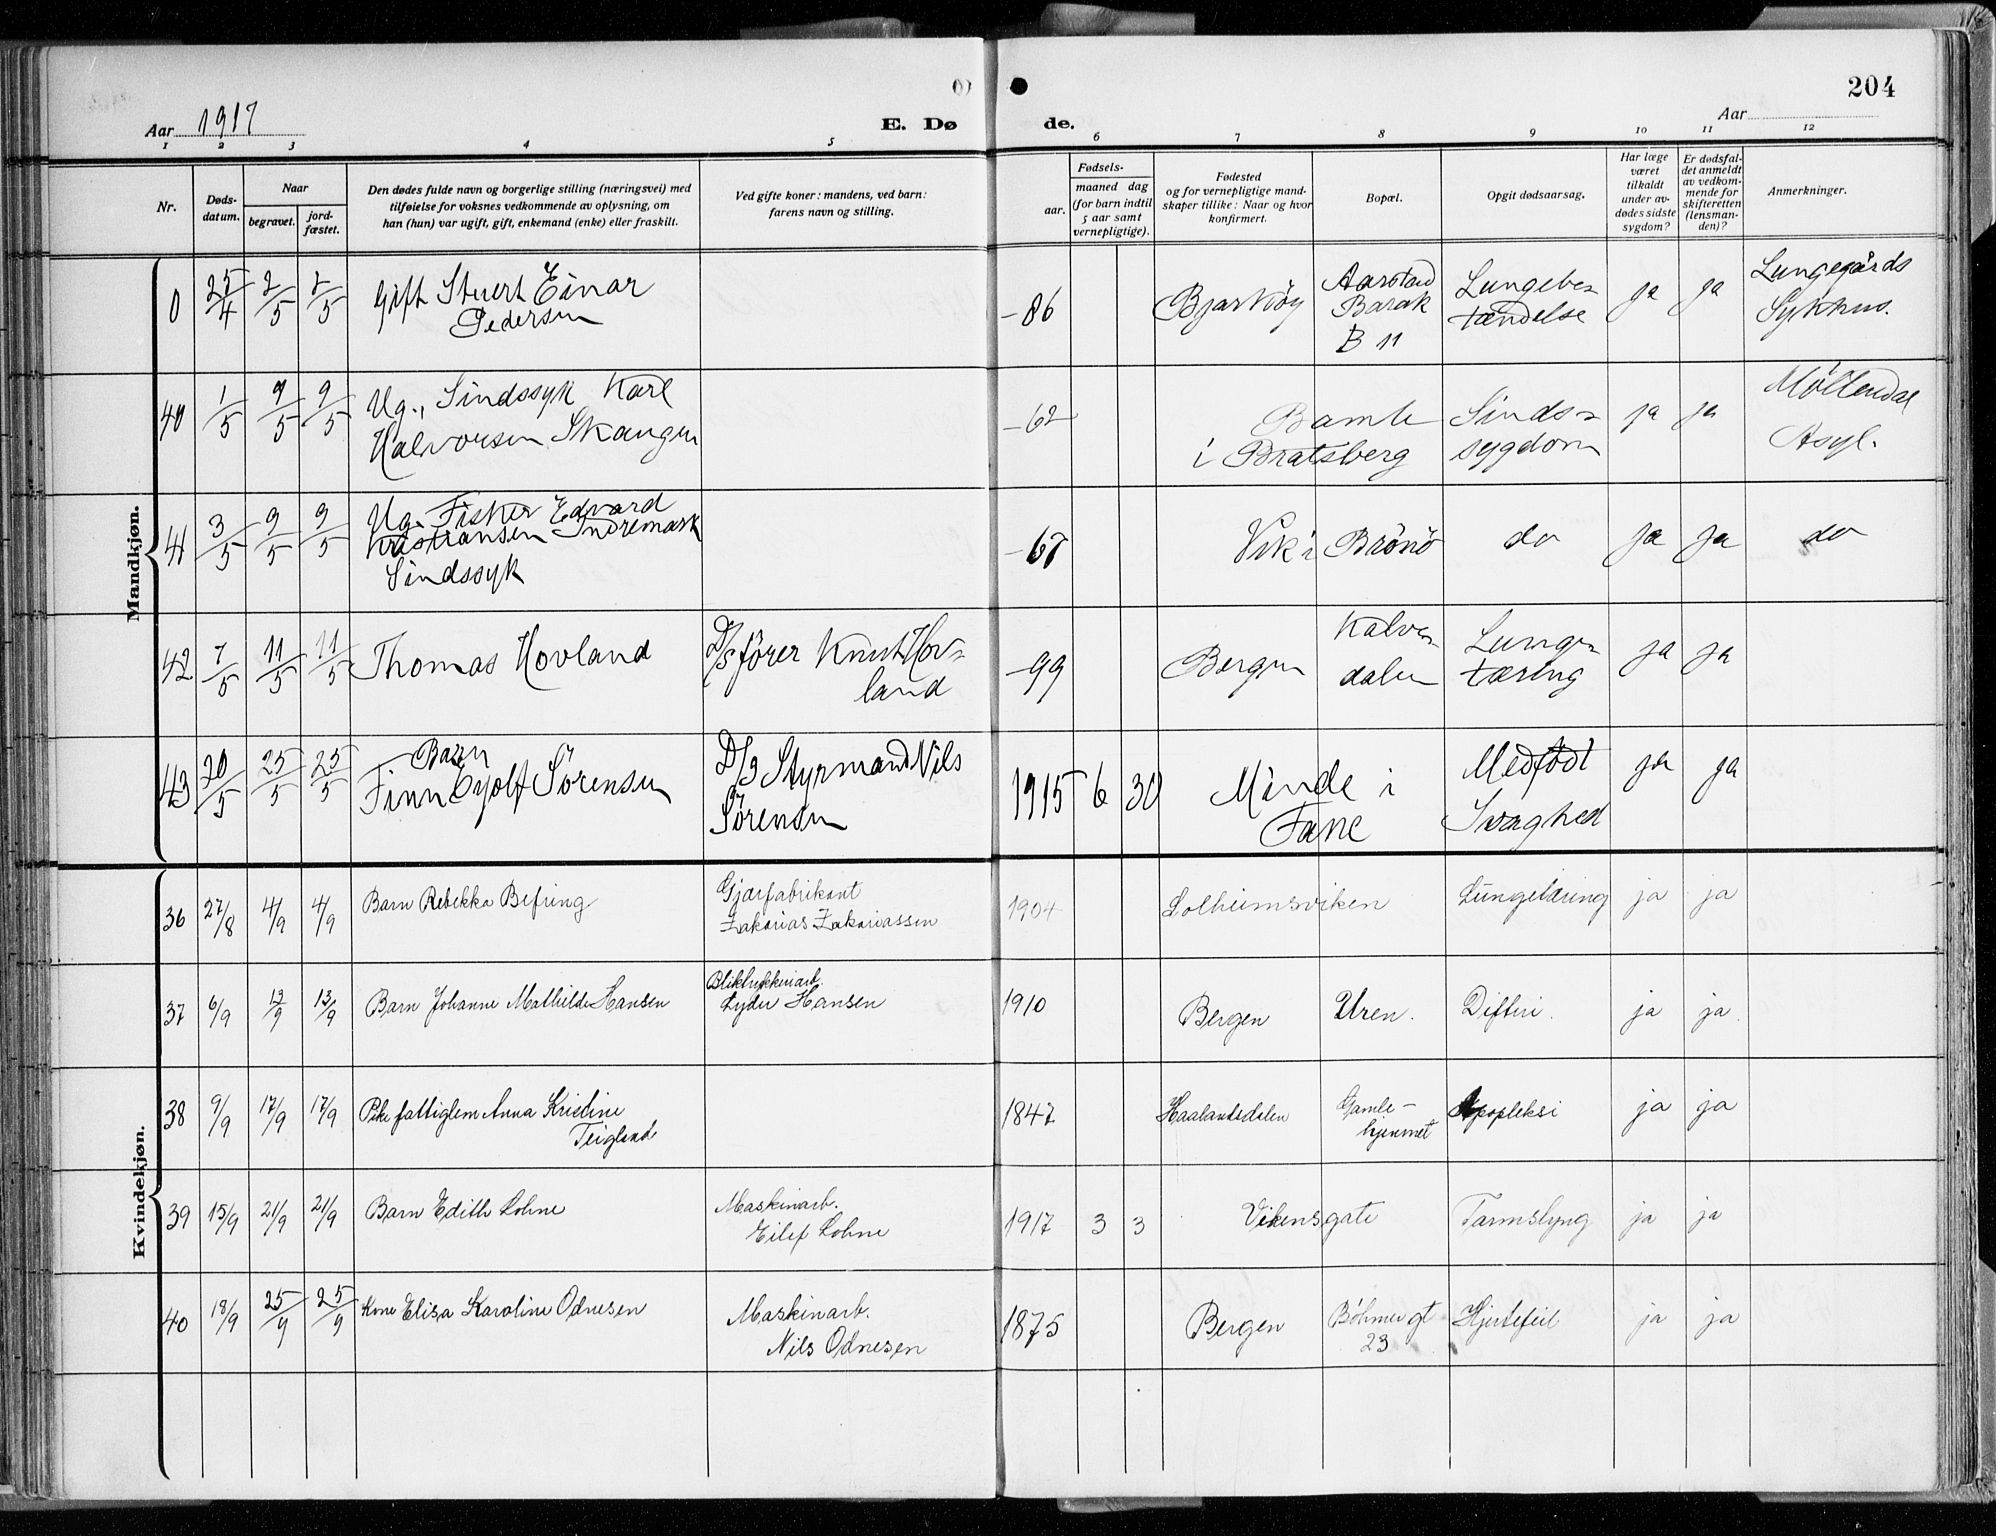 204
Aar 1917
E. Dø
de.
Aar
1 2 3 4 5 6 7 8 9 10 11 12
Nr.
Døds-
datum.
Naar
begravet.
jord-
fæstet.
Den dødes fulde navn og borgerlige stilling (næringsvei) med
tilføielse for voksnes vedkommende av oplysning, om
han (hun) var ugift, gift, enkemand (enke) eller fraskilt.
Ved gifte koner: mandens, ved barn:
farens navn og stilling.
Fødsels-
aar.
maaned dag
(for barn indtil
5 aar samt
vernepligtige).
Fødested
og for vernepligtige mand-
skaper tillike: Naar og hvor
konfirmert.
Bopæl.
Opgit dødsaarsag.
Har læge
været
tilkaldt
under av-
dødes sidste
sygdom?
Er dødsfal-
det anmeldt
av vedkom-
mende for
skifteretten
(lensman-
den)?
Anmerkninger.
Mandkjøn.
0 25/4 2/5 2/5 Gift Stuert Einar
Pedersen
-86 Bjarköy
Aarstad
Barak
B 11
Lungebe=
tændelse
ja ja
Lungegårds
Sykhus.
40 1/5 9/5 9/5 Ug., Sindssyk Karl
Halvorsen Skaugen
-62
Bamle
i Bratsberg
Sinds=
sygdom
ja ja
Möllendal
Asyl.
41 3/5 9/5 9/5 Ug. Fisker Edvard
Kristiansen Indremark
Sindssyk
-67 Vik i Brönö do ja ja do
42 7/5 11/5 11/5 Thomas Hovland
D/S fører Knut Hov=
land
-99 Bergen
Kalve=
dalen
Lunge=
tæring
ja ja
43 20/5 25/5 25/5 Barn
Finn Eyolf Sörensen
D/S Styrmand Nils
Sörensen
1915 6 30
Minde i
Fane
Medfödt
Svaghed
ja ja
Kvindekjøn.
36 27/8 4/9 4/9 Barn Rebekka Befring
Gjærfabrikant
Zakarias Zakariassen
1904 Solheimsviken Lungetæring ja ja
37 6/9 13/9 13/9 Barn Johanne Mathilde Hansen
Bliktrykkeriarb.
Lyder Hansen
1910 Bergen Uren. Difteri. ja ja.
38 9/9 17/9 17/9 Pike fattiglem Anna Kristine
Teigland
1847 Haalandsdalen
Gamle-
hjemmet
Apopleksi ja ja
39 15/9 21/9 21/9 Barn Edith Lohne
Maskinarb.
Eilef Lohne
1917 3 3 Vikensgate Tarmslyng ja ja
40 18/9 25/9 25/9 Kone Elisa Karoline Odnesen
Maskinarb.
Nils Odnesen
1875 Bergen
Böhmergt
23
Hjertefeil ja ja